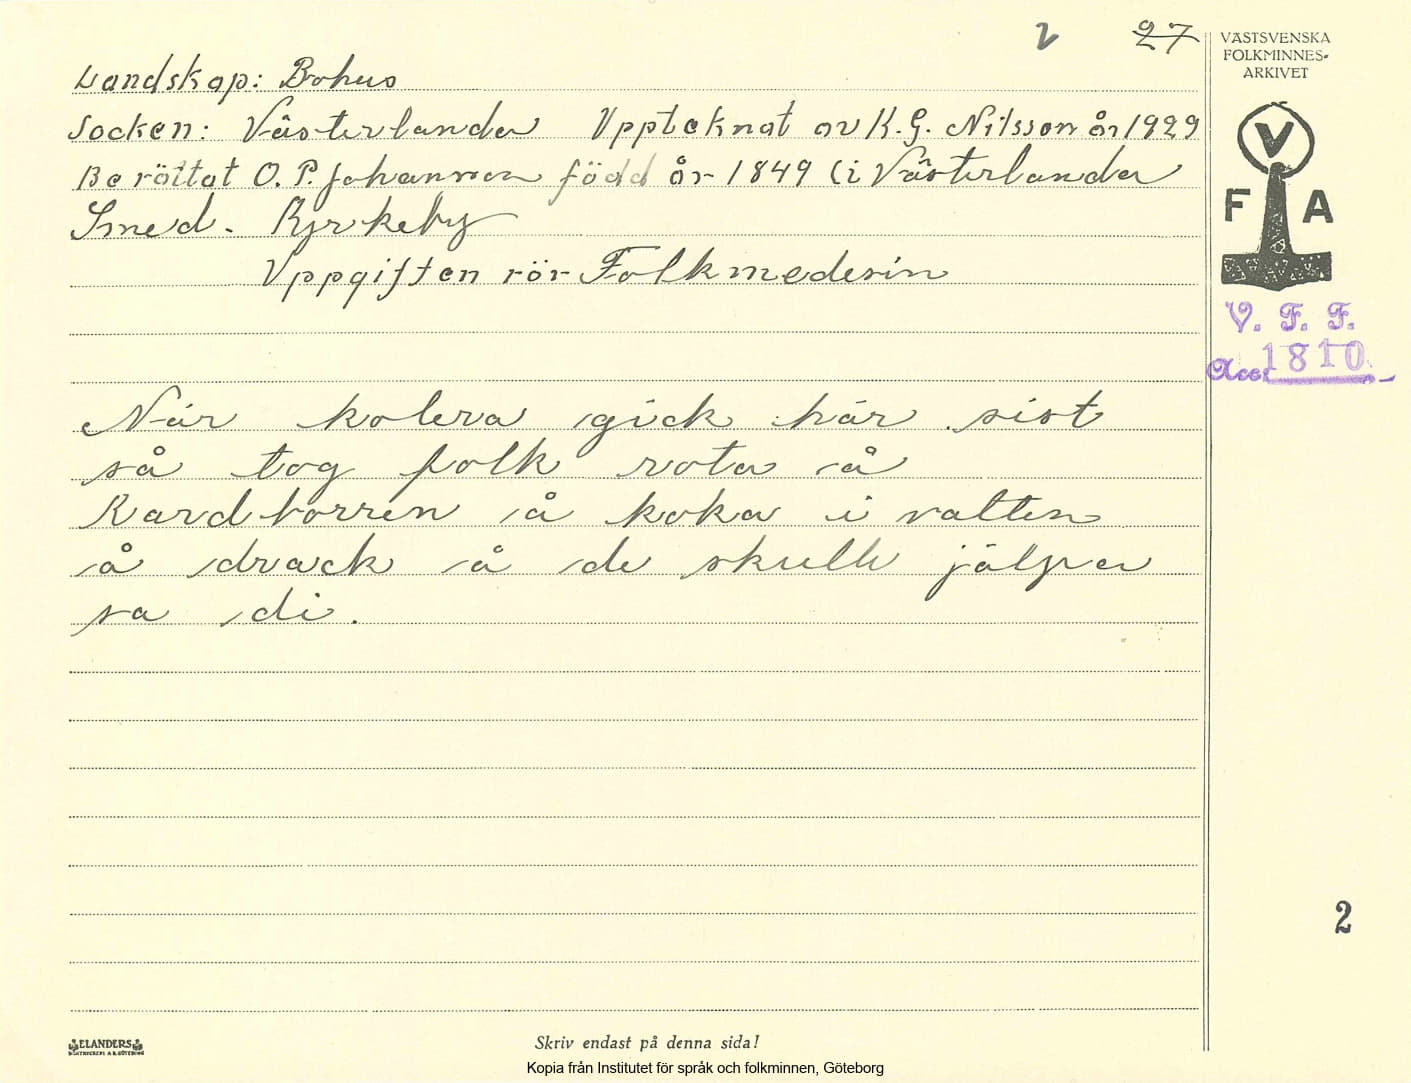 2 27
VÄSTSVENSKA
FOLKMINNES-
ARKIVET
Landskap: Bohus
Socken: Västerlanda Uppteknat av K. G. Nilsson år 1929
Berättat O. P. Johansson född år 1849 (i Västerlanda
Smed. Kyrkeby
Uppgiften rör Folkmedesin
V
F A
V. F. F.
Acc. 1810
När kolera gick här sist
så tog folk rota å
Kardborren å koka i vatten
å drack å de skulle jälpa
sa di.
2
ELANDERS
Skriv endast på denna sida!
Kopia från Institutet för språk och folkminnen, Göteborg